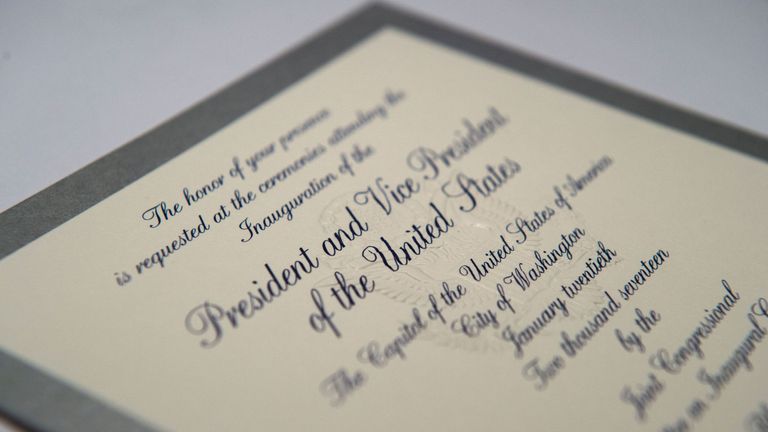 The honor of your presence
is requested at the ceremonies attending the
Inauguration of the
President and Vice President
of the United States
The Capitol of the United States of America
City of Washington
January twentieth
Two thousand seventeen
by the
Joint Congressional
on Inaugural